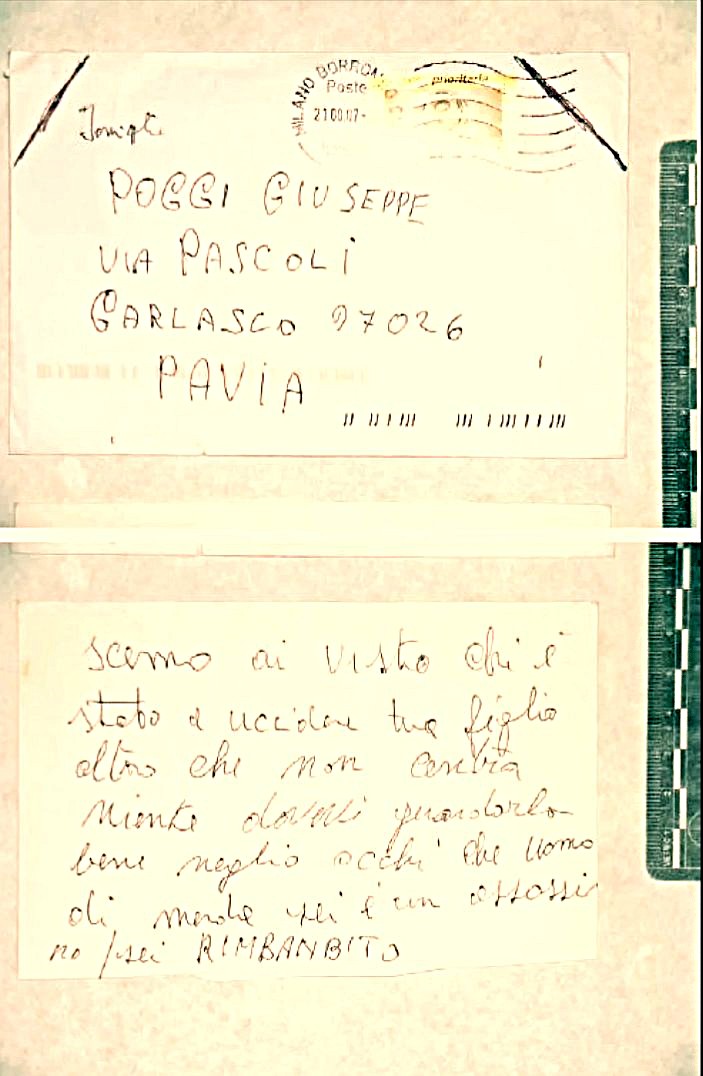 MILANO BORROMEO
Poste
prioritaria
Famiglia
POGGI GIUSEPPE
VIA PASCOLI
GARLASCO 27026
PAVIA
scemo ai visto chi è
stato a uccidere tua figlia
altro che non centra
niente dovevi guardarlo
bene neglio occhi che uomo
di merda sei è un assassi
no / sei RIMBANBITO